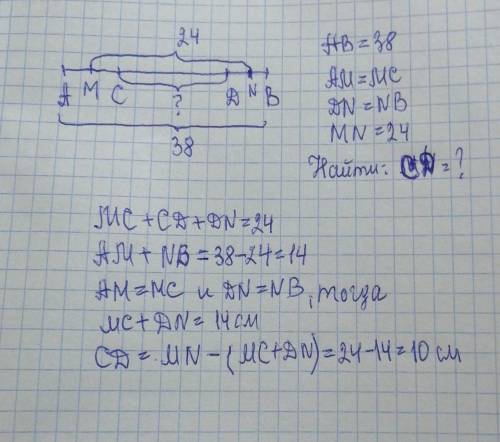 24
A M C ? D N B
38
AB = 38
AM = MC
DN = NB
MN = 24
Найти: CD = ?
MC + CD + DN = 24
AM + NB = 38 - 24 = 14
AM = MC и DN = NB, тогда
MC + DN = 14 см
CD = MN - (MC + DN) = 24 - 14 = 10 см